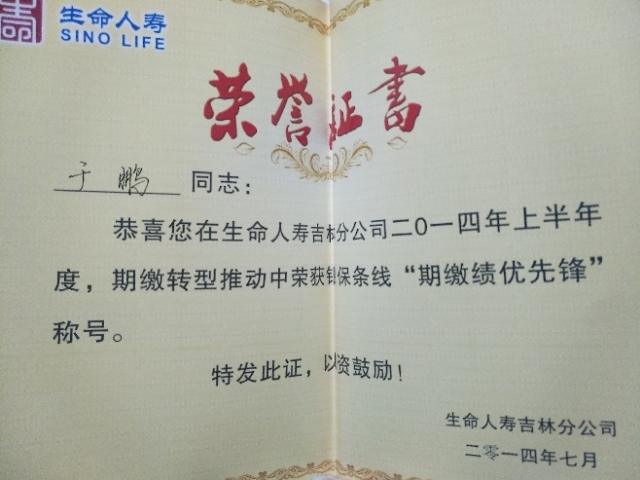 生命人寿
SINO LIFE
荣誉证书
于鹏 同志：
恭喜您在生命人寿吉林分公司二0一四年上半年
度，期缴转型推动中荣获银保条线“期缴绩优先锋”
称号。
特发此证，以资鼓励！
生命人寿吉林分公司
二零一四年七月